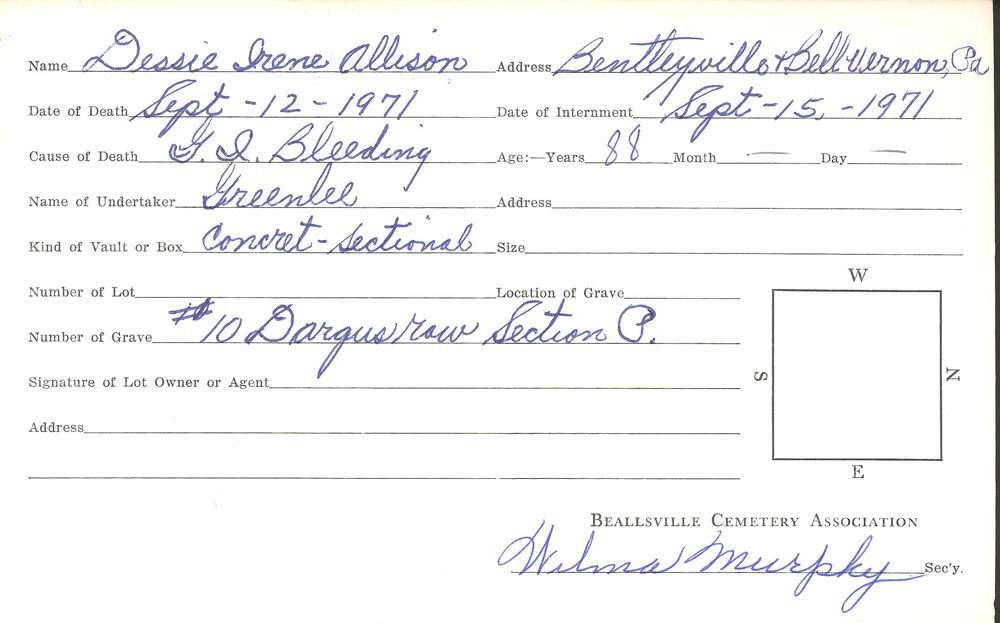 Name Dessie Irene Allison Address Bentleyville & Bell Vernon, Pa
Date of Death Sept - 12 - 1971 Date of Internment Sept - 15, - 1971
Cause of Death G. I. Bleeding Age:—Years 88 Month — Day —
Name of Undertaker Greenlee Address
Kind of Vault or Box Concret - Sectional Size
Number of Lot Location of Grave
W
Number of Grave #10 Dargus row Section P.
Signature of Lot Owner or Agent
S N
Address
E
BEALLSVILLE CEMETERY ASSOCIATION
Wilma Murphy Sec'y.